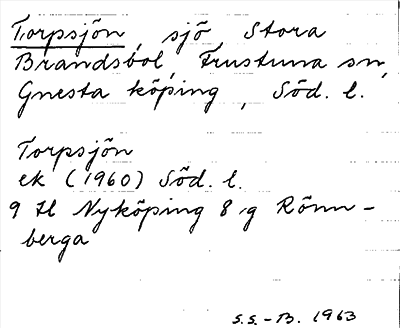 Torpsjön, sjö Stora
Brandsbol, Frustuna sn,
Gnesta köping, Söd. l.
Torpsjön
ek (1960) Söd. l.
9 H Nyköping 8 g Rönn-
berga
S.S.-B. 1963